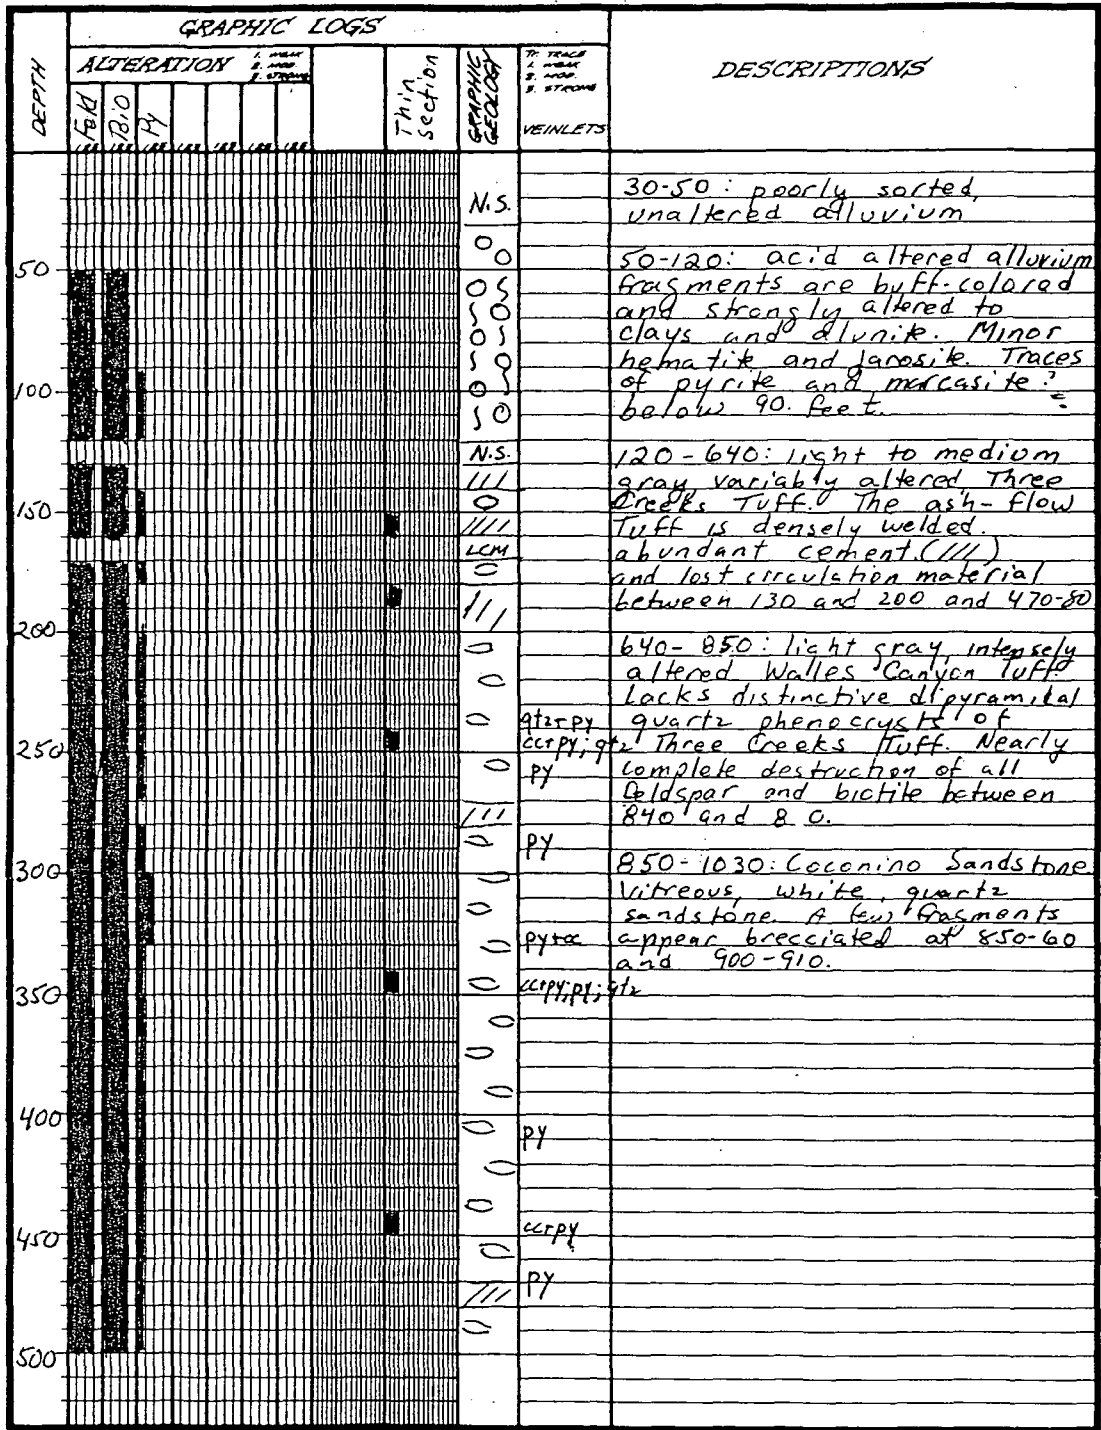 GRAPHIC LOGS
DEPTH
ALTERATION
1. WEAK
2. MOD.
3. STRONG
Feld
Bio
Py
Thin section
GRAPHIC GEOLOGY
Tr. TRACE
1. WEAK
2. MOD.
3. STRONG
VEINLETS
DESCRIPTIONS
N.S.
30-50: poorly sorted,
unaltered alluvium
50
50-120: acid altered alluvium
fragments are buff-colored
and strongly altered to
clays and alunite. Minor
hematite and jarosite. Traces
100
of pyrite and marcasite?
below 90 feet.
N.S.
120-640: light to medium
gray variably altered Three
150
Creeks Tuff. The ash-flow
Tuff is densely welded.
LCM
abundant cement (///)
and lost circulation material
between 130 and 200 and 470-80
200
640-850: light gray, intensely
altered Wales Canyon Tuff.
Lacks distinctive dipyramidal
qtz+py
quartz phenocrysts of
250
cc+py; qtz
Three Creeks Tuff. Nearly
py
complete destruction of all
feldspar and biotite between
840 and 8 0.
py
300
850-1030: Coconino Sandstone
Vitreous, white, quartz
sandstone. A few fragments
py+cc
appear brecciated at 850-60
and 900-910.
350
cc+py; py; qtz
400
py
450
cc+py
py
500